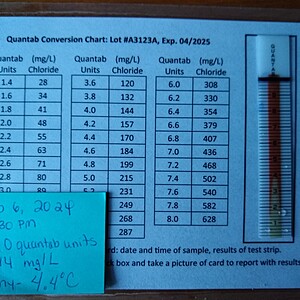 Quantab Conversion Chart: Lot #A3123A, Exp. 04/2025
uantab (mg/L) Quantab (mg/L) Quantab (mg/L)
Units Chloride Units Chloride Units Chloride
1.4 28 3.6 120 6.0 308
1.6 34 3.8 132 6.2 330
1.8 41 4.0 144 6.4 354
2.0 48 4.2 157 6.6 379
2.2 55 4.4 170 6.8 407
2.4 63 4.6 184 7.0 436
2.6 71 4.8 199 7.2 468
2.8 80 5.0 215 7.4 502
3.0 89 5.2 231 7.6 540
249 7.8 582
8.0 628
287
6, 2024
30 PM
0 quantab units
mg/L
4.4°C
rd: date and time of sample, results of test strip.
k box and take a picture of card to report with results
QUANTAB